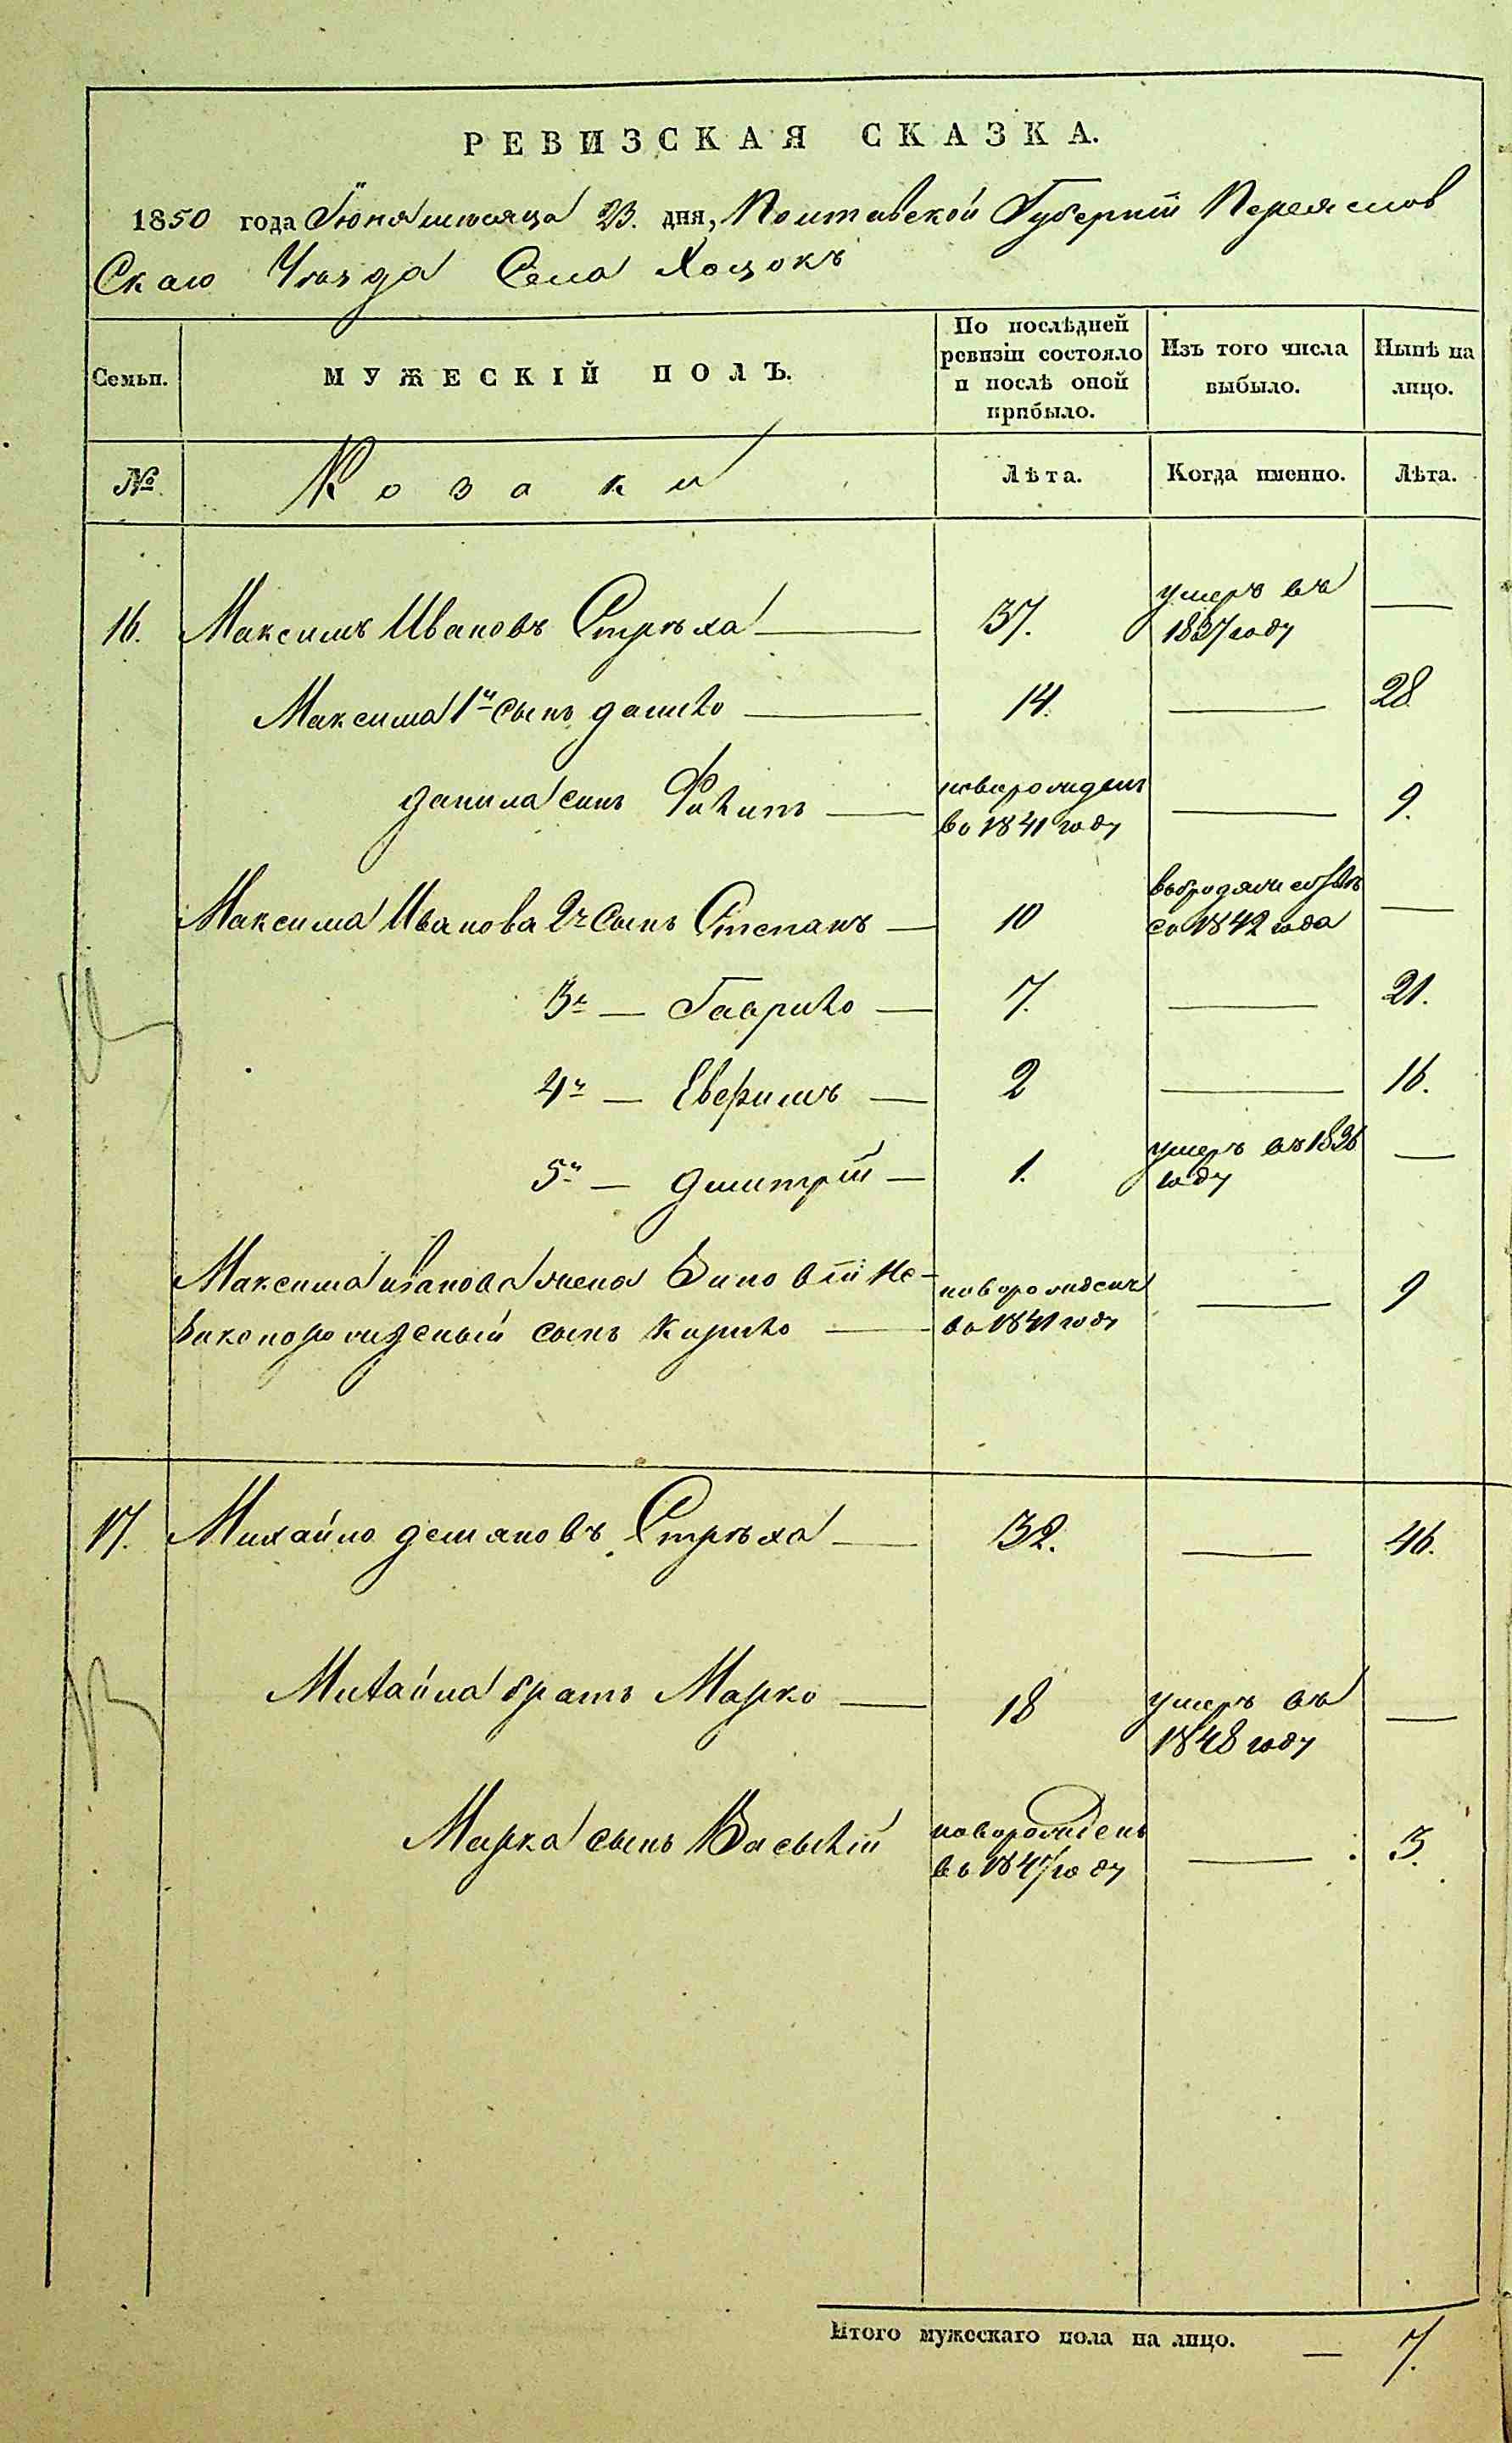 РЕВИЗСКАЯ СКАЗКА.
1850 года Іюня мѣсяца 23. дня, Полтавской Губерніи Переяслов
Скаго Уѣзда Села Хоцокъ
Семьи.
МУЖЕСКІЙ ПОЛЪ.
По послѣдней
ревизіи состояло
и послѣ оной
прибыло.
Изъ того числа
выбыло.
Нынѣ на
лицо.
№
Козаки
Лѣта.
Когда именно.
Лѣта.
16. Максимъ Ивановъ Стрѣха — 37. умеръ въ —
1837 году
Максима 1й Сынъ данило — 14. — 28
данила сынъ Филипъ — новорожденъ — 9.
во 1841 году
Максима Иванова 2й Сынъ Степанъ — 10 —
со 1842 года
3й — Гаврило — 7. — 21.
4й — Евфимъ — 2 — 16.
5й — дмитрій — 1. умеръ въ 1836 —
году
Максима иванова жена Зиновіи не-
законорожденый сынъ Кирило — новорожденъ — 9
во 1841 году
17. Михайло демяновъ Стрѣха — 32. — 46.
Михайла братъ Марко — 18 умеръ въ —
1848 году
Марка сынъ Василій новорожденъ — 3.
во 1847 году
Итого мужескаго пола на лицо. — 7.